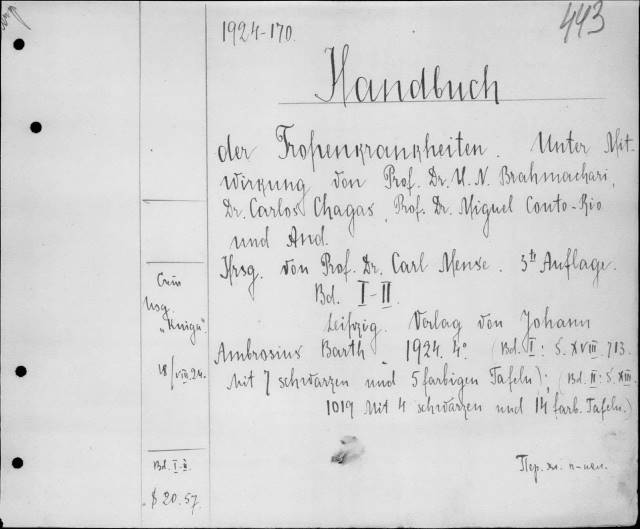 1924-170.
443
Handbuch
der Tropenkrankheiten. Unter Mit-
wirkung von Prof. Dr. U. N. Brahmachari,
Dr. Carlos Chagas, Prof. Dr. Miguel Couto-Rio
und And.
Hrsg. von Prof. Dr. Carl Mense. 3te Auflage.
Bd. I-II.
Leipzig. Verlag von Johann
Ambrosius Barth. 1924. 4° (Bd. I: S. XVIII. 713.
Mit 7 schwarzen und 5 farbigen Tafeln); (Bd. II: S. XIII.
1019 Mit 4 schwarzen und 14 farb. Tafeln.)
"Kniga"
18/VIII.24.
Bd. I-II.
$ 20.57